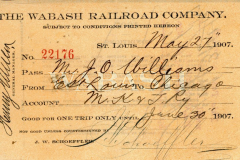 THE WABASH RAILROAD COMPANY.
SUBJECT TO CONDITIONS PRINTED HEREON
ST. LOUIS May 27" 1907.
No. 22176
PASS Mr J. O. Williams
FROM East Louis TO Chicago
ACCOUNT M. K. & T. Ry
GOOD FOR ONE TRIP ONLY UNTIL June 30" 1907.
J. W. SCHOEFFLER